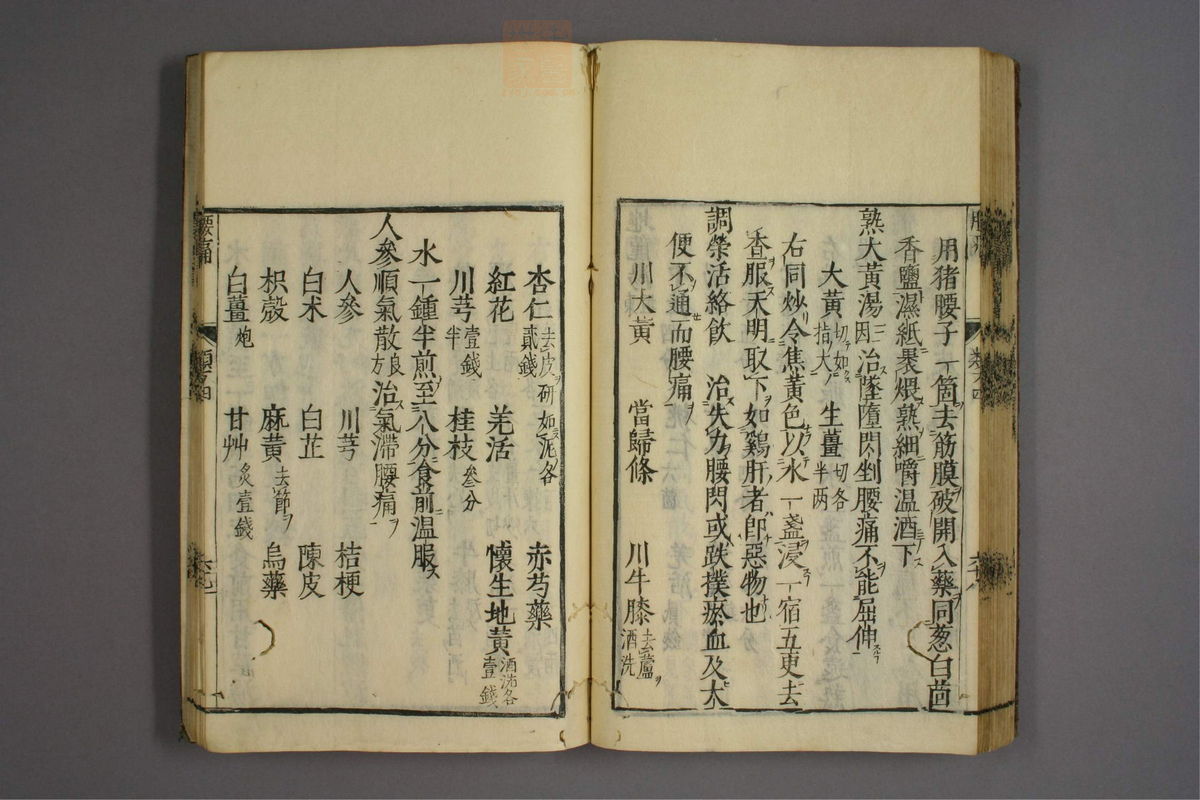 用猪腰子一箇去筋膜破開入藥同葱白茴
香鹽濕紙裹煨熟細嚼温酒下
熟大黃湯三因治墜墮閃剉腰痛不能屈伸
大黃切如指大 生薑切各半两
右同炒令焦黃色以水一盞浸一宿五更去
查服天明取下如鷄肝者卽惡物也
調榮活絡飲 治失力腰閃或跌撲瘀血及大
便不通而腰痛
川大黃 當歸條 川牛膝去蘆酒洗
杏仁去皮研如泥各貳錢 赤芍藥
紅花 羌活 懷生地黃酒洗各壹錢
川芎壹錢半 桂枝叄分
水一鍾半煎至八分食前温服
人參順氣散良方治氣滯腰痛
人參 川芎 桔梗
白术 白芷 陳皮
枳殼 麻黃去節 烏藥
白薑炮 甘艸炙壹錢
腰痛